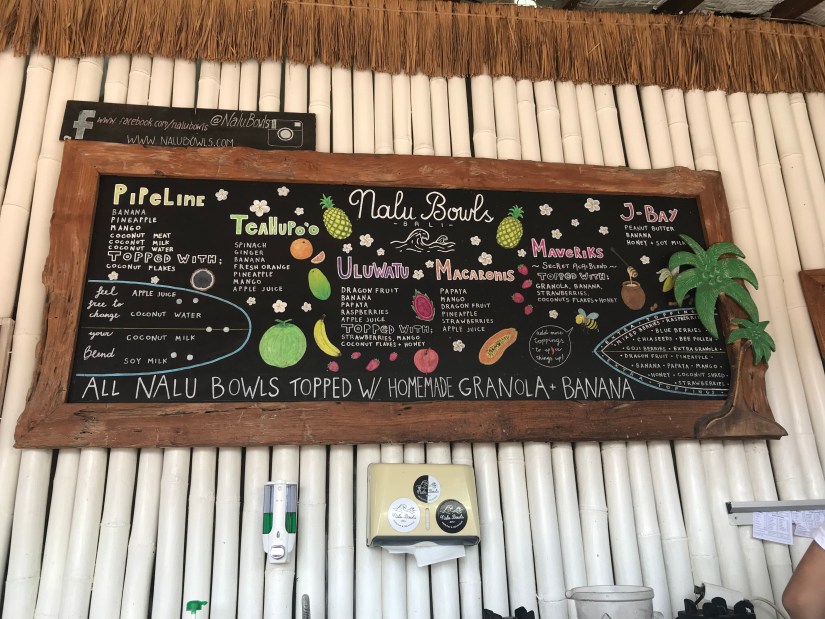 www.facebook.com/nalubowls @NaluBowls
WWW.NALUBOWLS.COM
Nalu Bowls
- BALI -
PIPELINE
BANANA
PINEAPPLE
MANGO
COCONUT MEAT
COCONUT MILK
COCONUT WATER
TOPPED WITH:
COCONUT FLAKES
feel free to change your Blend
APPLE JUICE
COCONUT WATER
COCONUT MILK
SOY MILK
TEAHUPO'O
SPINACH
GINGER
BANANA
FRESH ORANGE
PINEAPPLE
MANGO
APPLE JUICE
ULUWATU
DRAGON FRUIT
BANANA
PAPAYA
RASPBERRIES
APPLE JUICE
TOPPED WITH:
STRAWBERRIES, MANGO
COCONUT FLAKES + HONEY
MACARONIS
PAPAYA
MANGO
DRAGON FRUIT
PINEAPPLE
STRAWBERRIES
APPLE JUICE
MAVERIKS
~ SECRET AÇAI BLEND ~
TOPPED WITH:
GRANOLA, BANANA,
STRAWBERRIES,
COCONUTS FLAKES + HONEY
add more toppings to bee things up!
J-BAY
PEANUT BUTTER
BANANA
HONEY + SOY MILK
EXTRA TOPPING
MIXED BERRIES RASPBERRIES
BLUE BERRIES
CHIA SEEDS • BEE POLLEN
GOJI BERRIES • EXTRA GRANOLA
DRAGON FRUIT • PINEAPPLE
BANANA • PAPAYA • MANGO
HONEY • COCONUT
STRAWBERRIES
ALL NALU BOWLS TOPPED W/ HOMEMADE GRANOLA + BANANA
Nalu Bowls
Nalu Bowls
Nalu Bowls